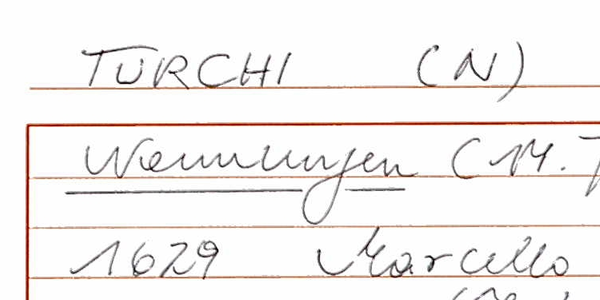 TURCHI (N)
Nennungen (M.
1629 Marcello